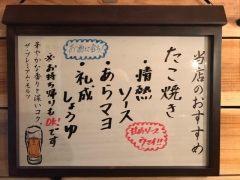 当店のおすすめ
たこ焼き
・情熱
ソース
・あらマヨ
・礼成
しょうゆ
お酒に合う!
※お持ち帰りもOK!です
華やかな香りと深いコク。
ザ・プレミアム・モルツ